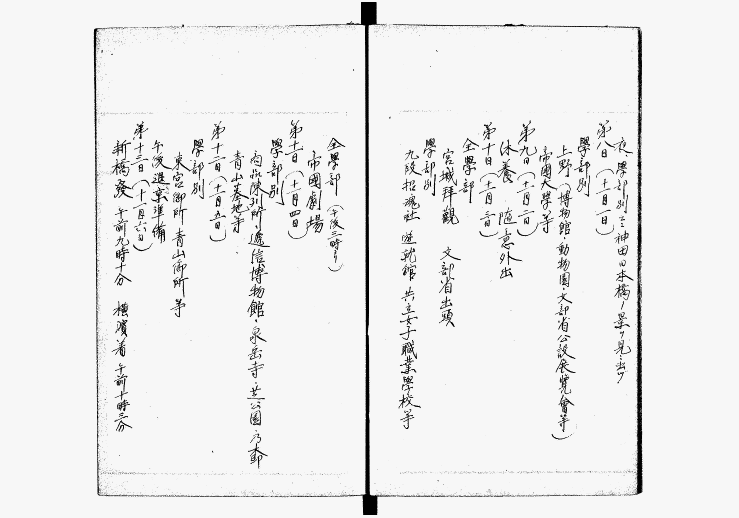 夜 學部別ニ神田日本橋ノ景ヲ見ニ出ヅ
第八日（十一月一日）
學部別
上野（博物館・動物園・文部省公設展覽會等）
帝國大學等
第九日（十一月二日）
休養 隨意外出
第十日（十一月三日）
全學部
宮城拜觀 文部省出頭
學部別
九段招魂社 遊就館 共立女子職業學校等
全學部（午後三時ヨリ）
帝國劇場
第十一日（十一月四日）
學部別
商品陳列所・遞信博物館・泉岳寺・芝公園・乃木邸
青山墓地等
第十二日（十一月五日）
學部別
東宮御所 青山御所 等
午後退京準備
第十三日（十一月六日）
新橋發 午前九時十分 橫濱着 午前十時三分